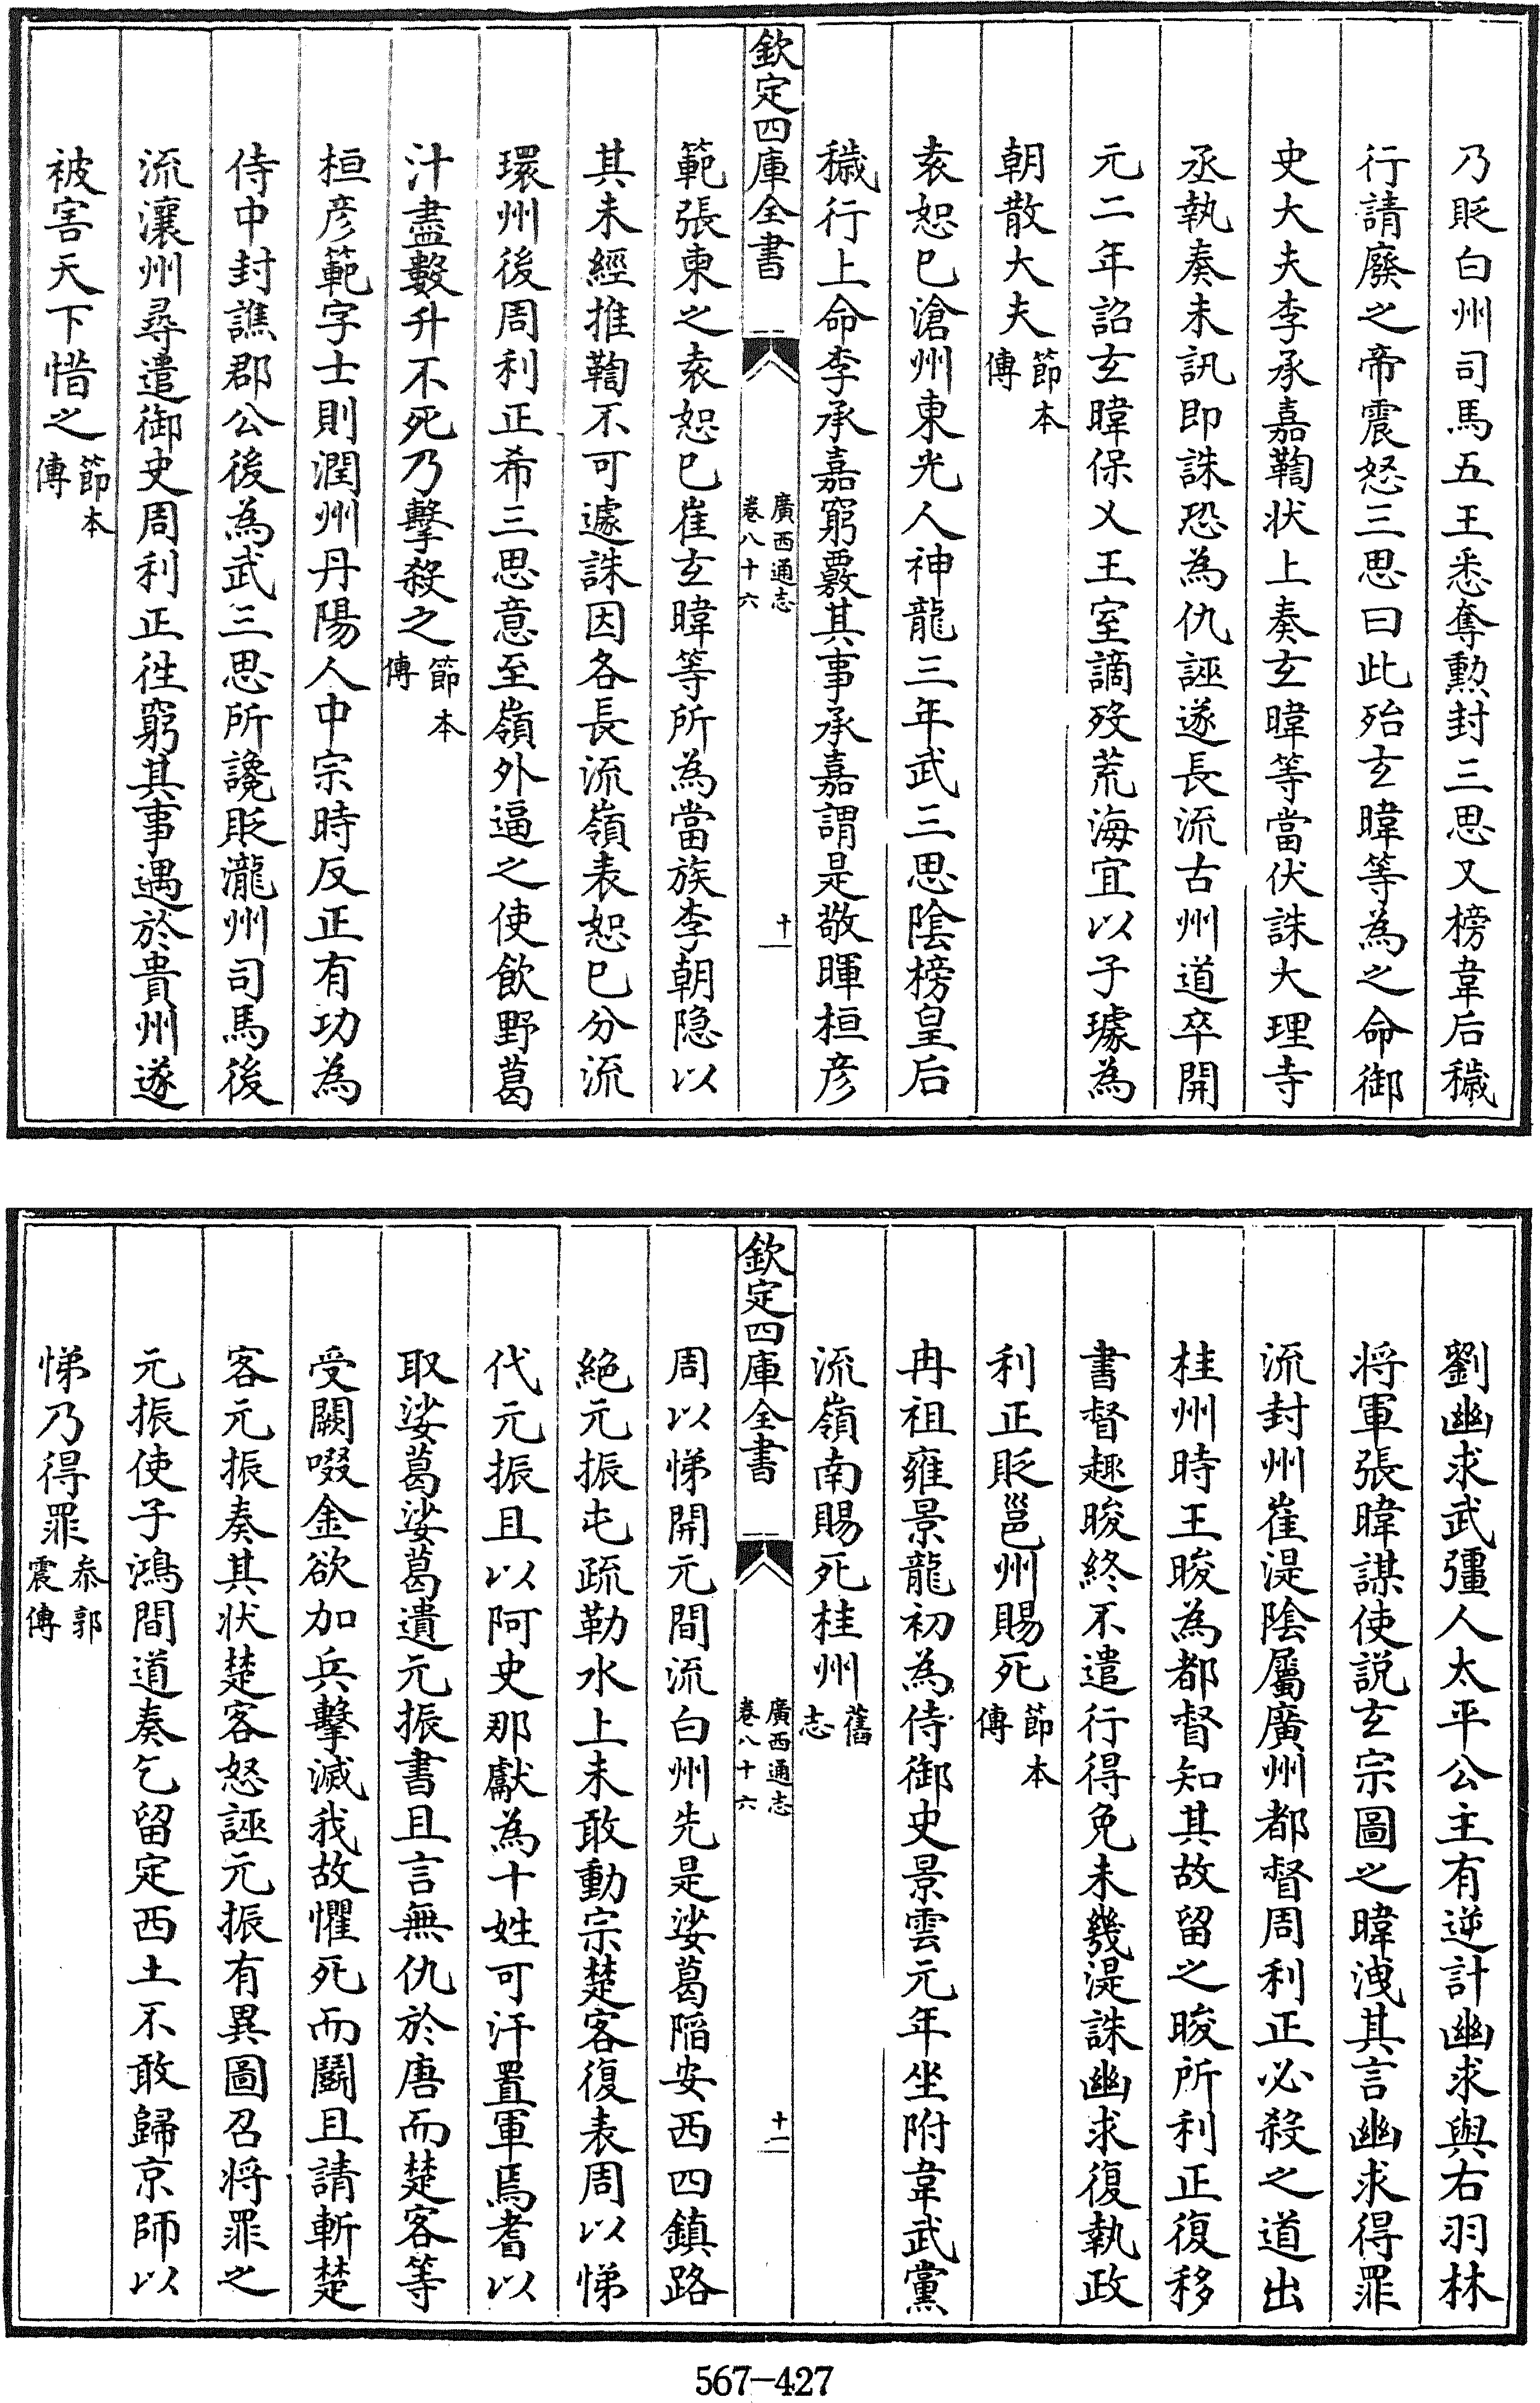 乃貶白州司馬五王悉奪勲封三思又榜韋后穢
行請廢之帝震怒三思曰此殆玄暐等為之命御
史大夫李承嘉鞫状上奏玄暐等當伏誅大理寺
丞執奏未訊即誅恐為仇誣遂長流古州道卒開
元二年詔玄暐保乂王室謫殁荒海宜以子璩為
朝散大夫節本傳
袁恕已滄州東光人神龍三年武三思隂榜皇后
穢行上命李承嘉窮覈其事承嘉謂是敬暉桓彦
欽定四庫全書
廣西通志
卷八十六
十一
範張柬之袁恕已崔玄暐等所為當族李朝隐以
其未經推鞫不可遽誅因各長流嶺表恕已分流
環州後周利正希三思意至嶺外逼之使飲野葛
汁盡數升不死乃擊殺之節本傳
桓彦範字士則潤州丹陽人中宗時反正有功為
侍中封譙郡公後為武三思所讒貶瀧州司馬後
流瀼州尋遣御史周利正徃窮其事遇於貴州遂
被害天下惜之節本傳
劉幽求武彊人太平公主有逆計幽求與右羽林
将軍張暐謀使説玄宗圖之暐洩其言幽求得罪
流封州崔湜隂屬廣州都督周利正必殺之道出
桂州時王晙為都督知其故留之晙所利正復移
書督趣晙終不遣行得免未幾湜誅幽求復執政
利正貶邕州賜死節本傳
冉祖雍景龍初為侍御史景雲元年坐附韋武黨
流嶺南賜死桂州舊志
欽定四庫全書
廣西通志
卷八十六
十二
周以悌開元間流白州先是娑葛䧟安西四鎮路
絶元振屯疏勒水上未敢動宗楚客復表周以悌
代元振且以阿史那獻為十姓可汗置軍焉耆以
取娑葛娑葛遺元振書且言無仇於唐而楚客等
受闕啜金欲加兵擊滅我故懼死而鬭且請斬楚
客元振奏其状楚客怒誣元振有異圖召将罪之
元振使子鴻間道奏乞留定西土不敢歸京師以
悌乃得罪叅郭震傳
567-427